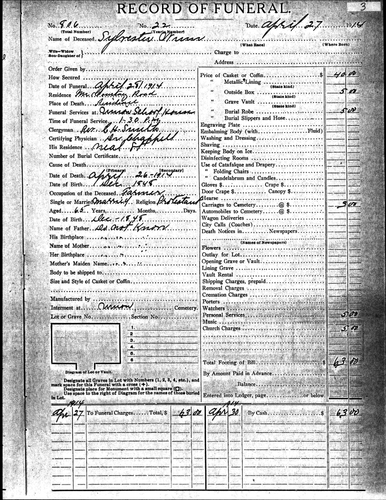 RECORD OF FUNERAL.
3
No. 806 No. 22 Date, April 27 1914
(Total Number) (Yearly Number)
Name of Deceased, Sylvester
(What Race) (Where Born)
Wife—Widow
Son-Daughter of
Charge to
Address
Order Given by
How Secured
Date of Funeral April 28, 1914
Residence
Place of Death, Residence
Funeral Services at Union School House
Time of Funeral Service 1-30 P.M.
Clergyman Rev.
Certifying Physician Dr.
His Residence Neal
Number of Burial Certificate
Cause of Death,
(Primary) (Secondary)
Date of Death April 26-1914
Date of Birth Dec. 1848
Occupation of the Deceased Farmer
Single or Married Married Religion Protestant
Aged 65 Years Months, Days.
Date of Birth Dec-1848
Name of Father, Do not Know
His Birthplace
Name of Mother
Her Birthplace
Mother's Maiden Name
Body to be shipped to
Size and Style of Casket or Coffin,
Manufactured by
Interment at Union Cemetery.
Lot or Grave No. Section No.
1.
2.
3.
4.
5.
6.
Diagram of Lot or Vault.
Designate all Graves in Lot with Numbers (1, 2, 3, 4, etc.), and mark space for this Funeral with a cross (+).
Designate place for Monument with a small square (□).
Use space in the right of Diagram for the names of those buried in Lot.
Price of Casket or Coffin, 40 00
" Metallic Lining
(State kind)
" Outside Box 5 00
(State kind)
" Grave Vault
(State kind)
" Burial Robe 5 00
" Burial Slippers and Hose
Engraving Plate
Embalming Body (with Fluid)
Washing and Dressing
Shaving
Keeping Body on Ice
Disinfecting Rooms
Use of Catafalque and Drapery
" Folding Chairs
" Candelabrum and Candles
Gloves $ Crape $
Door Crape $ Canopy $
Hearse
Carriages to Cemetery @ $
Automobiles to Cemetery @ $
Wagon Deliveries
City Calls (Coaches)
Death Notices in Newspapers
(Names of Newspapers)
Flowers
Outlay for Lot
Opening Grave or Vault
Lining Grave
Vault Rental
Shipping Charges, prepaid
Removal Charges
Cremation Charges
Porters
Watchers
Personal Services 5 00
Music
Church Charges
Total Footing of Bill, 63 00
By Amount Paid in Advance
Balance
Entered into Ledger, page or below
1914
Apr 27 To Funeral Charges Total, $ 63 00
1914
Apr 30 By Cash $ 63 00